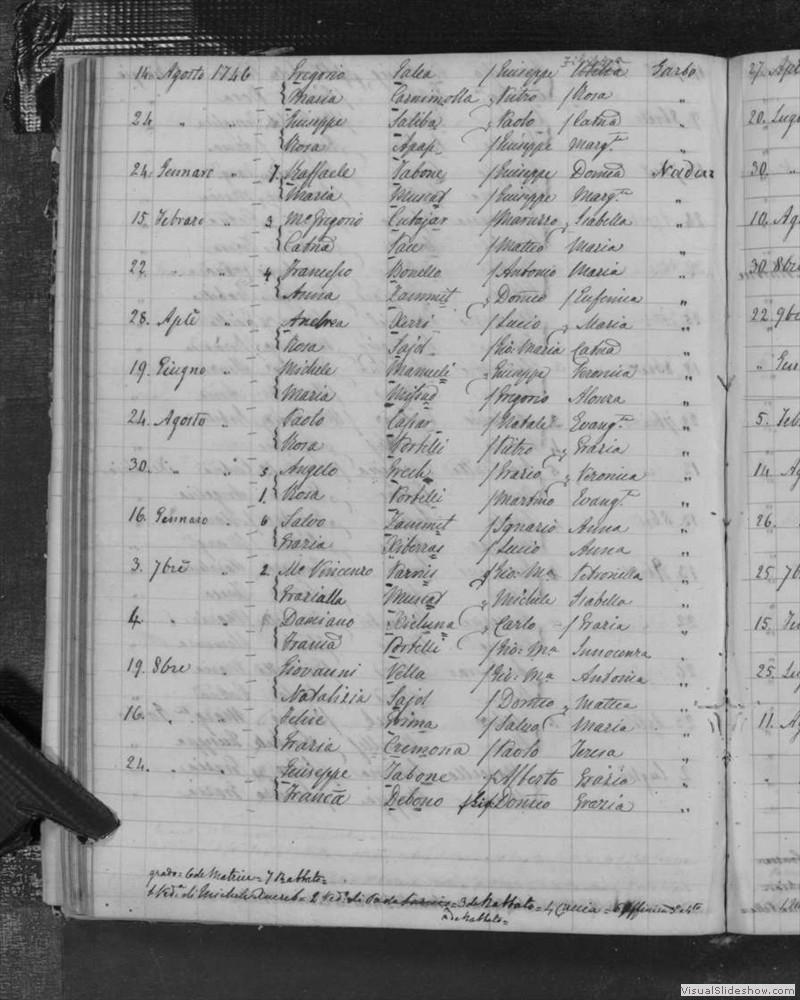 14. Agosto 1746 Gregorio Galea / Giuseppe Garbo
Maria / Pietro / Rosa "
24 " " Giuseppe Saliba " Paolo / Catnã "
Rosa Agap. / Giuseppe Margta "
24. Gennaro " 7. Raffaele Tabone / Giuseppe Domca Nadur
Maria Muscat / Giuseppe Margta "
15. Febraro " 3 Mo Gregorio Cutajar / Maruzzo " Isabella "
Catnã Pace / Matteo Maria "
22 " " 4 Francesco Bonello / Antonio Maria "
Anna Zammit " Domco / Eufemia "
28. Aple " Andrea Xerri / Lucio " Maria "
Rosa Sajd / Gio: Maria Catnã "
19. Giugno " Michele Manueli " Giuseppe Veronica "
Maria Mifsud / Gregorio Alonza "
24. Agosto " Paolo Capar / Natale Evangta "
Rosa Portelli / Pietro " Grazia "
30. " " 3 Angelo Grech / Grazio " Veronica "
1. Rosa Portelli / Martino Evangta "
16. Gennaro " 6 Salvo Zammit / Ignazio Anna "
Grazia Xiberras / Lucio Anna "
3. 7bre " 2. Mo Vincenzo Parnis Gio: Ma Petronella "
Grazialla Muscat " Michele Isabella "
4. " " Damiano Xicluna " Carlo / Grazia "
Francã Portelli / Gio: Ma Innocenza "
19. 8bre " Giovanni Vella / Gio: Ma Antonia "
Natalizia Sajd / Domco " Mattea "
16. " " Felice Grima / Salvo " Maria "
Grazia Cremona / Paolo Teresa "
24. " " Giuseppe Tabone / Alberto Grazia "
Francã Debono Domco Grazia "
grado = 6 de Matrice = 7 Rabbato =
= 3 de Rabbato = 4
de Rabbato =
27. Apl
20. Lug
30. "
10. Ag
30. 8bre
22. 9b
" Gen
5. Feb
14. Ag
26. "
25. 7b
15. Fe
25. Lu
11. Ag
VisualSlideshow.com